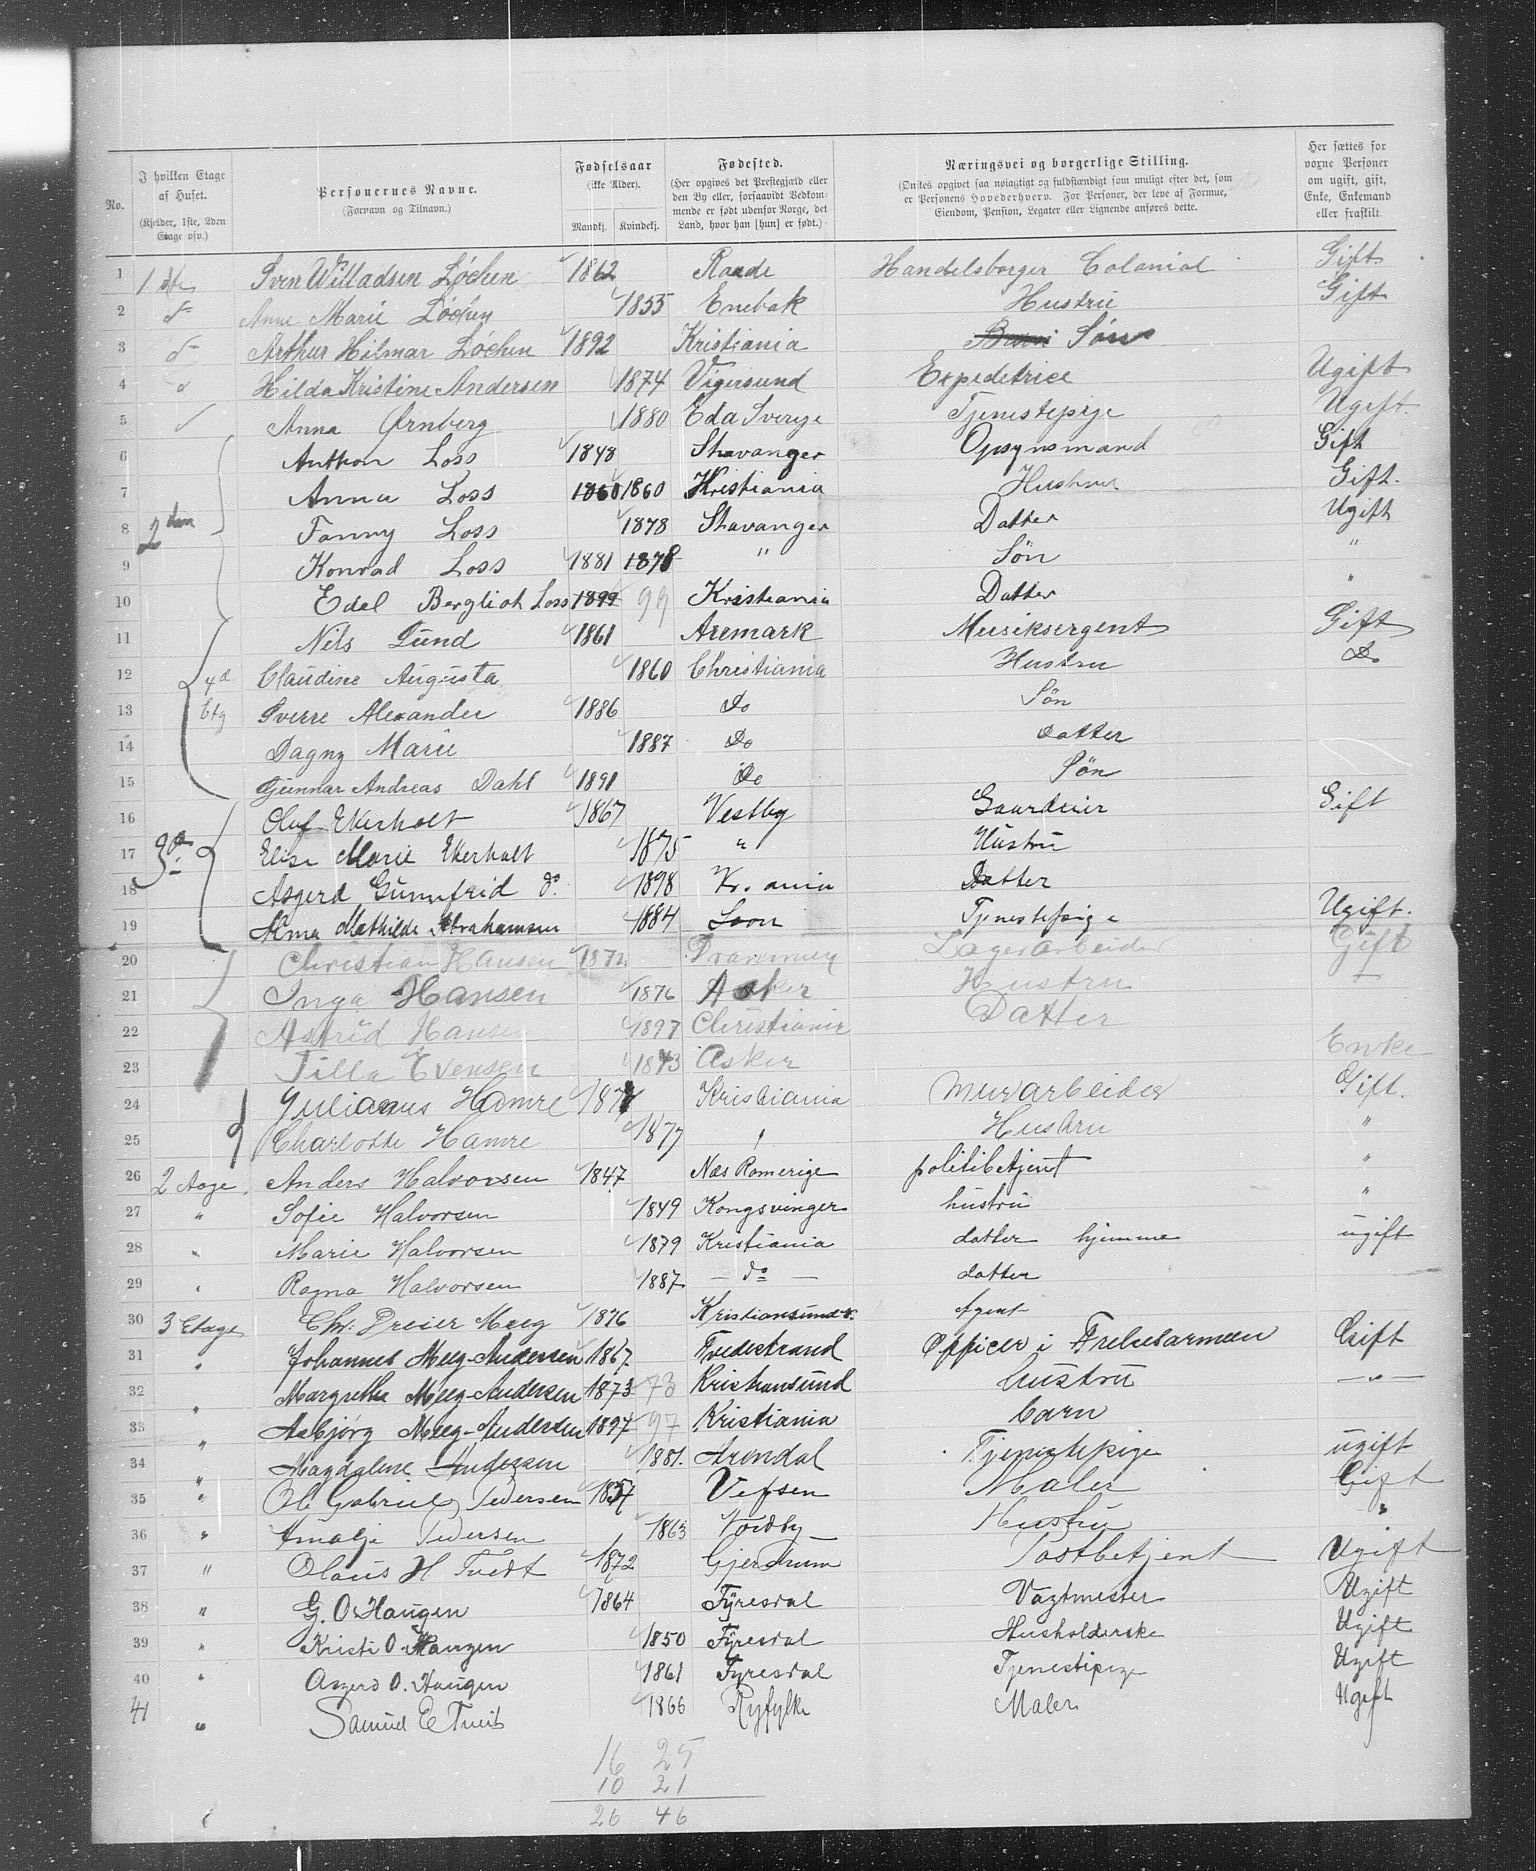 No.
I hvilken Etage af Huset. (Kjelder, 1ste, 2den Etage osv.)
Personernes Navne. (Fornavn og Tilnavn.)
Fødselsaar (ikke Alder). Mandkj. Kvindekj.
Fødested. (Her opgives det Prestegjæld eller den By eller, forsaavidt Vedkommende er født udenfor Norge, det Land, hvor han [hun] er født.)
Næringsvei og borgerlige Stilling. (Ønskes opgivet saa nøiagtigt og fuldstændigt som muligt efter det, som er Personens Hovederhverv. For Personer, der leve af Formue, Eiendom, Pension, Legater eller Lignende anføres dette.
Her sættes for voxne Personer om ugift, gift, Enke, Enkemand eller fraskilt.
1 1ste Sven Willadsen Löchen 1862 Raade Handelsborger Colonial Gift
2 do Anne Marie Löchen 1855 Enebak Hustrü Gift
3 do Arthur Hilmar Löchen 1892 Kristiania Sön
4 Hilda Kristine Andersen 1874 Vigersund Expedetrice Ugift
5 Anna Ørnberg 1880 Eda Sverge Tjenestepige Ugift
6 Anthon Loss 1848 Stavanger Opsynsmand Gift
7 Anna Loss 1860 1860 Kristiania Hustru Gift.
8 2den Fanny Loss 1878 Stavanger Datter Ugift
9 Konrad Loss 1881 1878 " Sön "
10 Edel Bergliot Loss 1899 99 Kristiania Datter "
11 Nils Lund 1861 Aremark Musiksergent Gift
12 4d Claudine Augusta 1860 Christiania Hustru Do
13 Etg Sverre Alexander 1886 Do Sön
14 Dagny Marie 1887 Do Datter
15 Gunnar Andreas Dahl 1891 Do Sön
16 Oluf Ekerholt 1867 Vestby Gaardeier Gift
17 3d Elise Marie Ekerholt 1875 " Hustru
18 Asgerd Gunnfrid do. 1898 Kr. ania Datter
19 Alma Mathilde Abrahamsen 1884 Soon Tjenestepige Ugift.
20 Christian Hansen 1872 Drammen Lagerarbeider Gift
21 Inga Hansen 1876 Asker Hustru
22 Astrid Hansen 1897 Christiania Datter
23 Tilla Evensen 1843 Asker Enke
24 Julianus Hamre Kristiania Murarbeider Gift.
25 Charlotte Hamre 1877 Hustru "
26 2 Etage Anders Halvorsen 1847 Næs Romerige politibetjent "
27 " Sofie Halvorsen 1849 Kongsvinger hustru "
28 " Marie Halvorsen 1879 Kristiania datter hjemme ugift
29 " Ragna Halvorsen 1887 — do — datter
30 3 Etage Chr. Dreier Meeg 1876 Kristiansund N. Agent
31 " Johannes Meeg-Andersen 1867 Tvedestrand Officer i Frelsesarmeen Gift
32 " Margrethe Meeg-Andersen 1873 73 Kristiansund hustru — " —
33 " Asbjörg Meeg-Andersen 1897 97 Kristiania barn
34 " Magdalene Andersen 1881. Arendal Tjenestepige ugift
35 " Ole Gabriel Pedersen 1857 Vefsen Maler Gift
36 " Amalje Pedersen 1863 Nordby Hustru "
37 " Olaus H Tvedt 1872 Gjerdrum Postbetjent Ugift
38 " G. O Haugen 1864 Fyresdal Vagtmester Ugift
39 " Kristi O. Haugen 1850 Fyresdal Husholderske Ugift
40 " Asgerd O. Haugen 1861 Fyresdal Tjenestepige Ugift
41 " Samuel E Tveit 1866 Ryfylke Maler Ugift
16 25
10 21
26 46